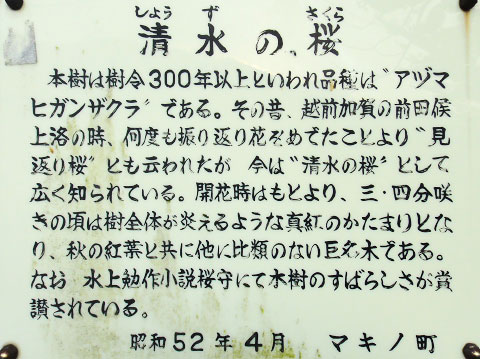 しょう ず さくら
清水の桜
本樹は樹令300年以上といわれ品種は“アヅマ
ヒガンザクラ”である。その昔、越前加賀の前田候
上洛の時、何度も振り返り花をめでたことより“見
返り桜”とも云われたが 今は“清水の桜”として
広く知られている。開花時はもとより、三・四分咲
きの頃は樹全体が炎えるような真紅のかたまりとな
り、秋の紅葉と共に他に比類のない巨名木である。
なお 水上勉作小説桜守にて本樹のすばらしさが賞
讃されている。
昭和52年4月 マキノ町